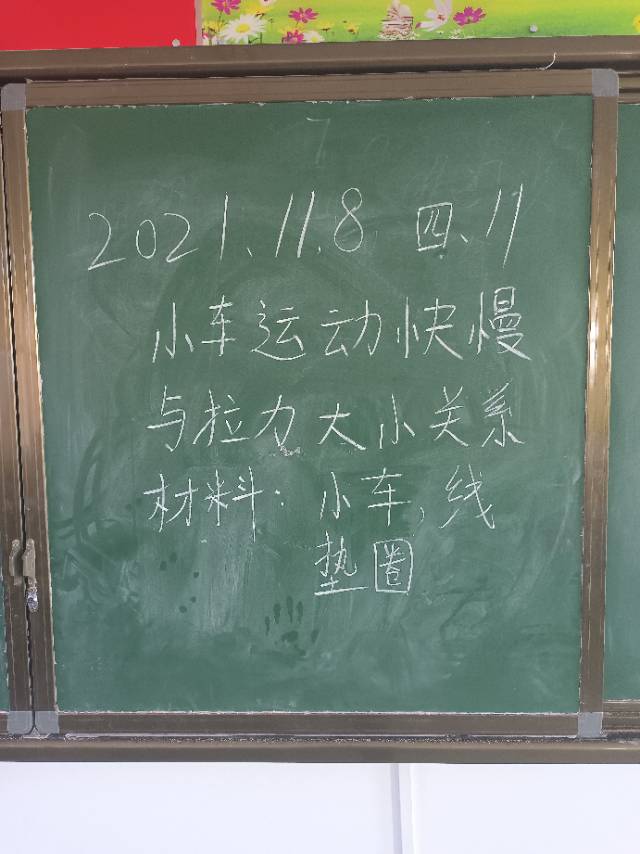 2021.11.8 四、11
小车运动快慢
与拉力大小关系
材料:小车,线
垫圈